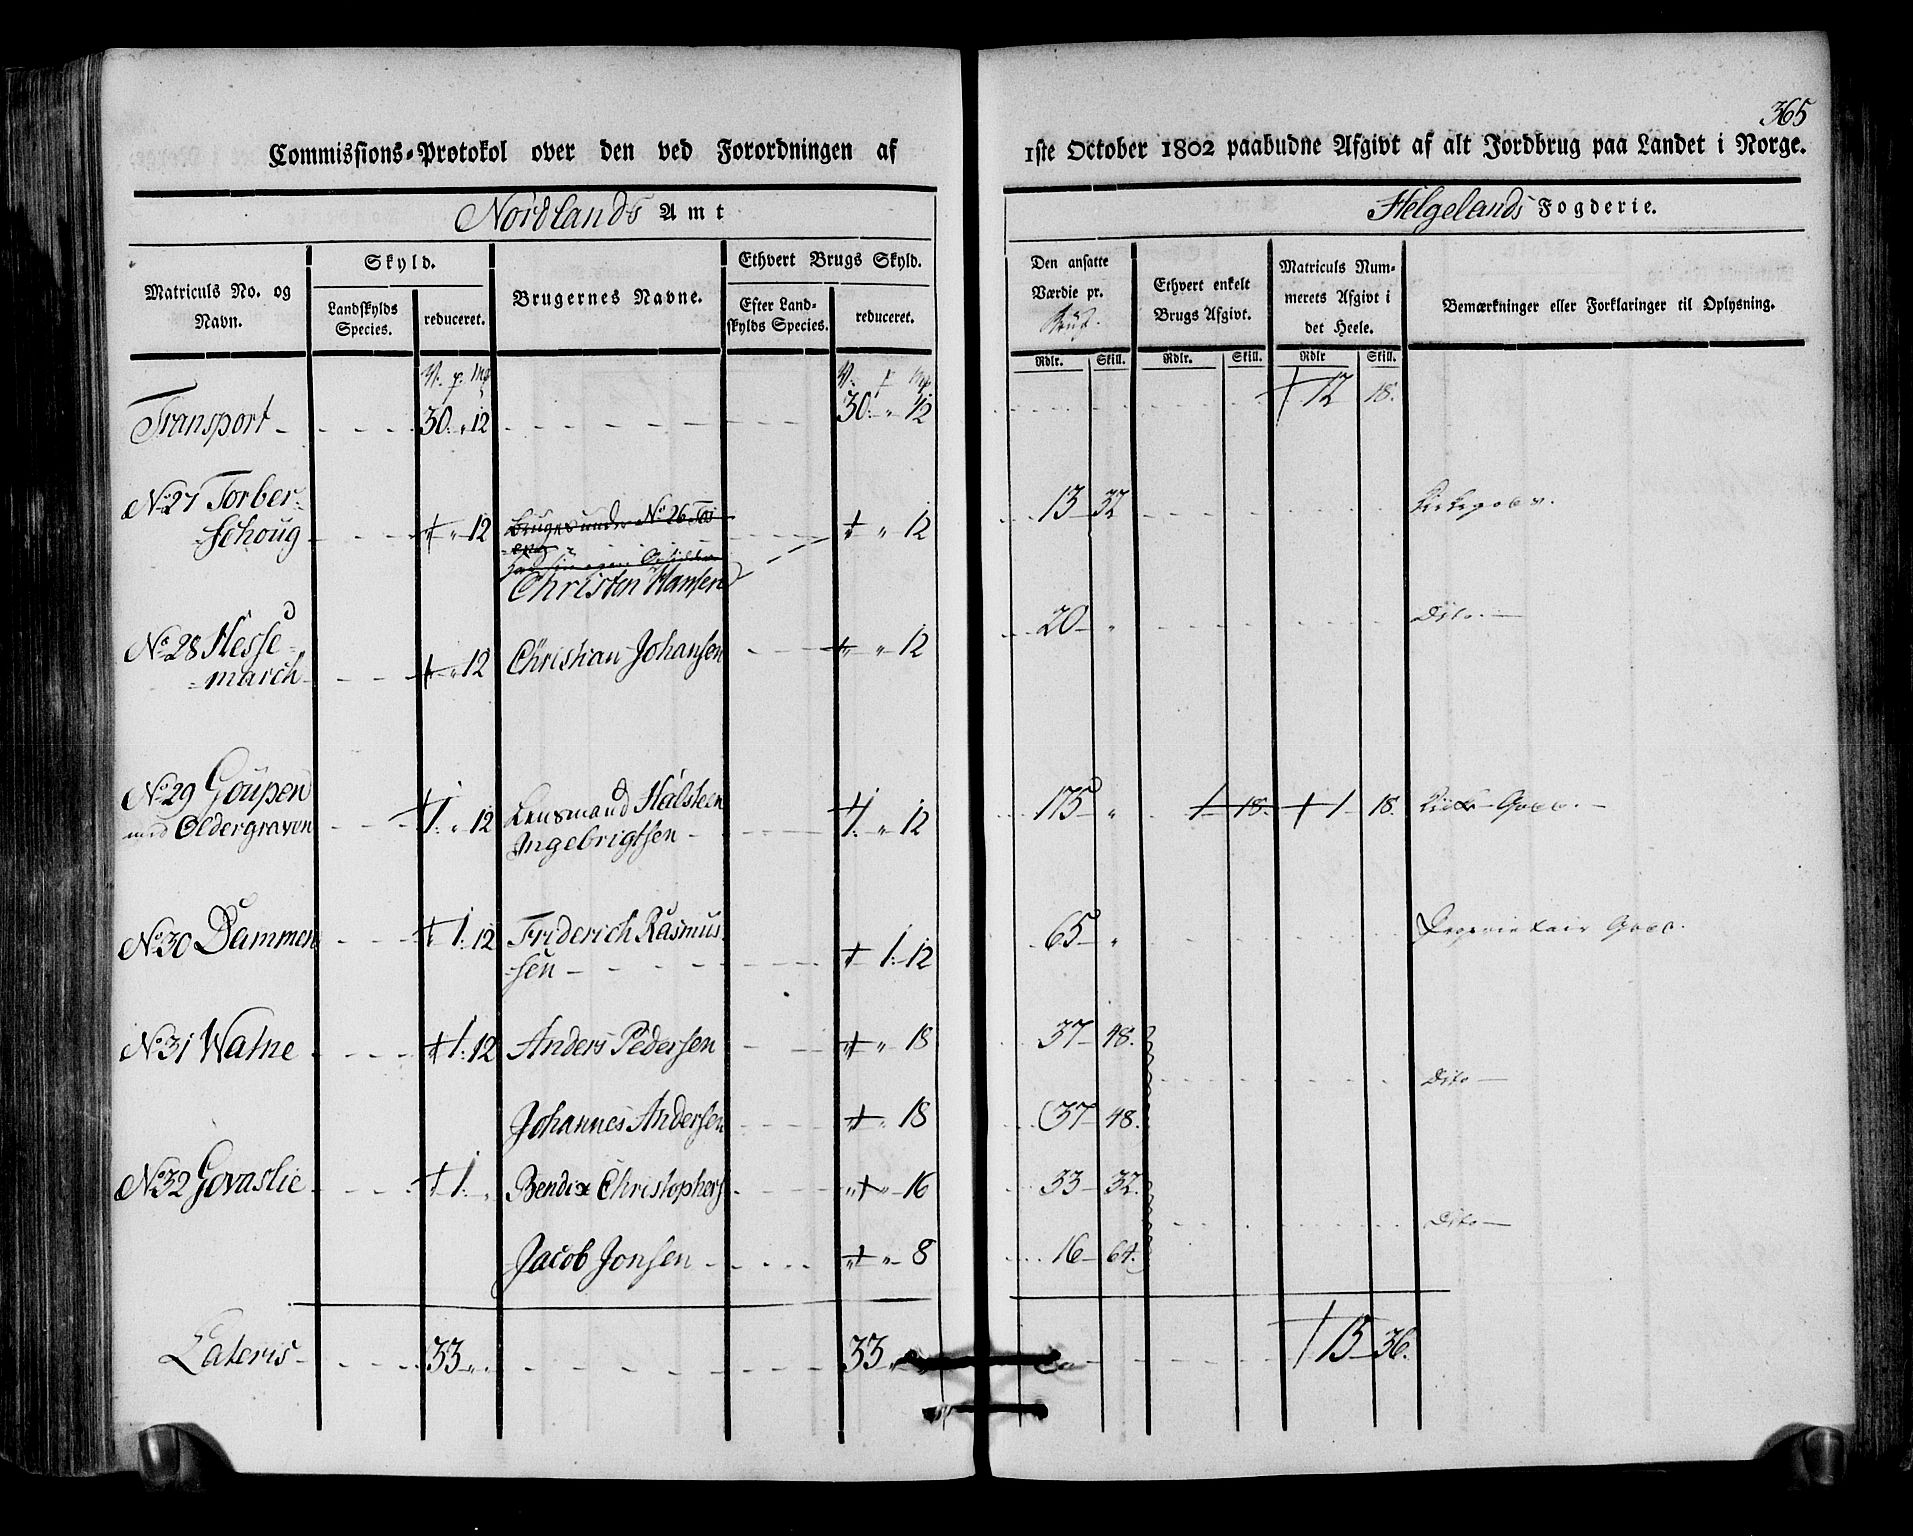 365
Commissions-Protokol over den ved Forordningen af 1ste October 1802 paabudne Afgivt af alt Jordbrug paa Landet i Norge.
Nordlands Amt
Helgelands Fogderie.
Matriculs No. og Navn.
Skyld.
Landskylds Species.
reduceret.
Brugernes Navne.
Ethvert Brugs Skyld.
Efter Landskylds Species.
reduceret.
Den ansatte Værdie pr.
Rdlr. Skill.
Ethvert enkelt Brugs Afgivt.
Rdlr. Skill.
Matriculs Nummerets Afgivt i det Heele.
Rdlr Skill.
Bemærkninger eller Forklaringer til Oplysning.
Transport 30. " 12 30. " 12 12 18.
No 27 Torberschoug " 12 Bruges under No 26
Christen Hansen " 12 13 32
No 28 Hessemarch " 12 Christian Johansen " 12 20 " Dito
No 29 Goupen med Oldergraven 1. " 12 Lensmand Halsteen Ingebrigtsen 1. " 12 175 " 1 18. 1 18.
No 30 Dammen 1. 12 Friderich Rasmussen 1. 12 65 " Proprietair Godo.
No 31 Watne 1. 12 Anders Pedersen " 18 37 48.
Dito
Johannes Andersen " 18 37 48.
No 32 Govaslie 1. " Bendix Christophers " 16 33 32.
Dito
Jacob Jonsen " 8 16 64.
Lateris 33 " " 33 " 13 36.